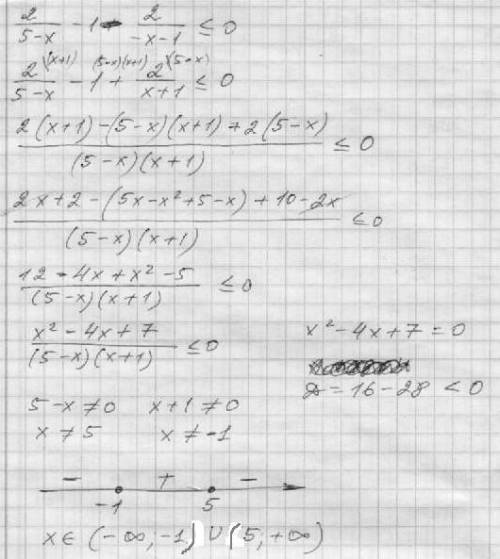 2/(5-x) - 1 - 2/(-x-1) ≤ 0
2^{\(x+1)}/(5-x) - 1^{\(5-x)(x+1)} + 2^{\(5-x)}/(x+1) ≤ 0
(2(x+1) - (5-x)(x+1) + 2(5-x))/((5-x)(x+1)) ≤ 0
(2x+2 - (5x-x²+5-x) + 10-2x)/((5-x)(x+1)) ≤ 0
(12 - 4x + x² - 5)/((5-x)(x+1)) ≤ 0
(x² - 4x + 7)/((5-x)(x+1)) ≤ 0
x² - 4x + 7 = 0
D = 16 - 28 < 0
5-x ≠ 0 x+1 ≠ 0
x ≠ 5 x ≠ -1
- + -
-1 5
x ∈ (-∞; -1) ∪ (5; +∞)